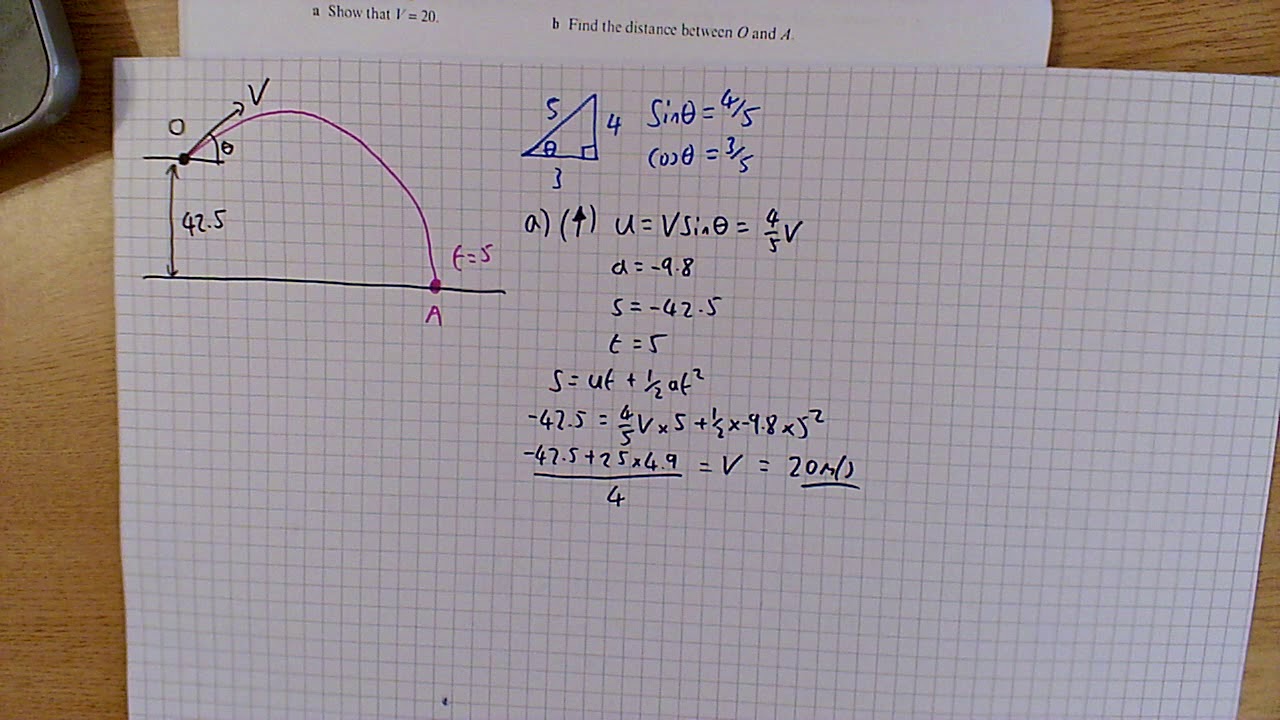 a Show that V = 20.
b Find the distance between O and A.
V
O
θ
42.5
t=5
A
5
4
θ
3
Sinθ = 4/5
Cosθ = 3/5
a) (↑) u = VSinθ = 4/5 V
a = -9.8
s = -42.5
t = 5
s = ut + 1/2 at²
-42.5 = 4/5 V × 5 + 1/2 × -9.8 × 5²
-42.5 + 25 × 4.9 / 4 = V = 20 m/s